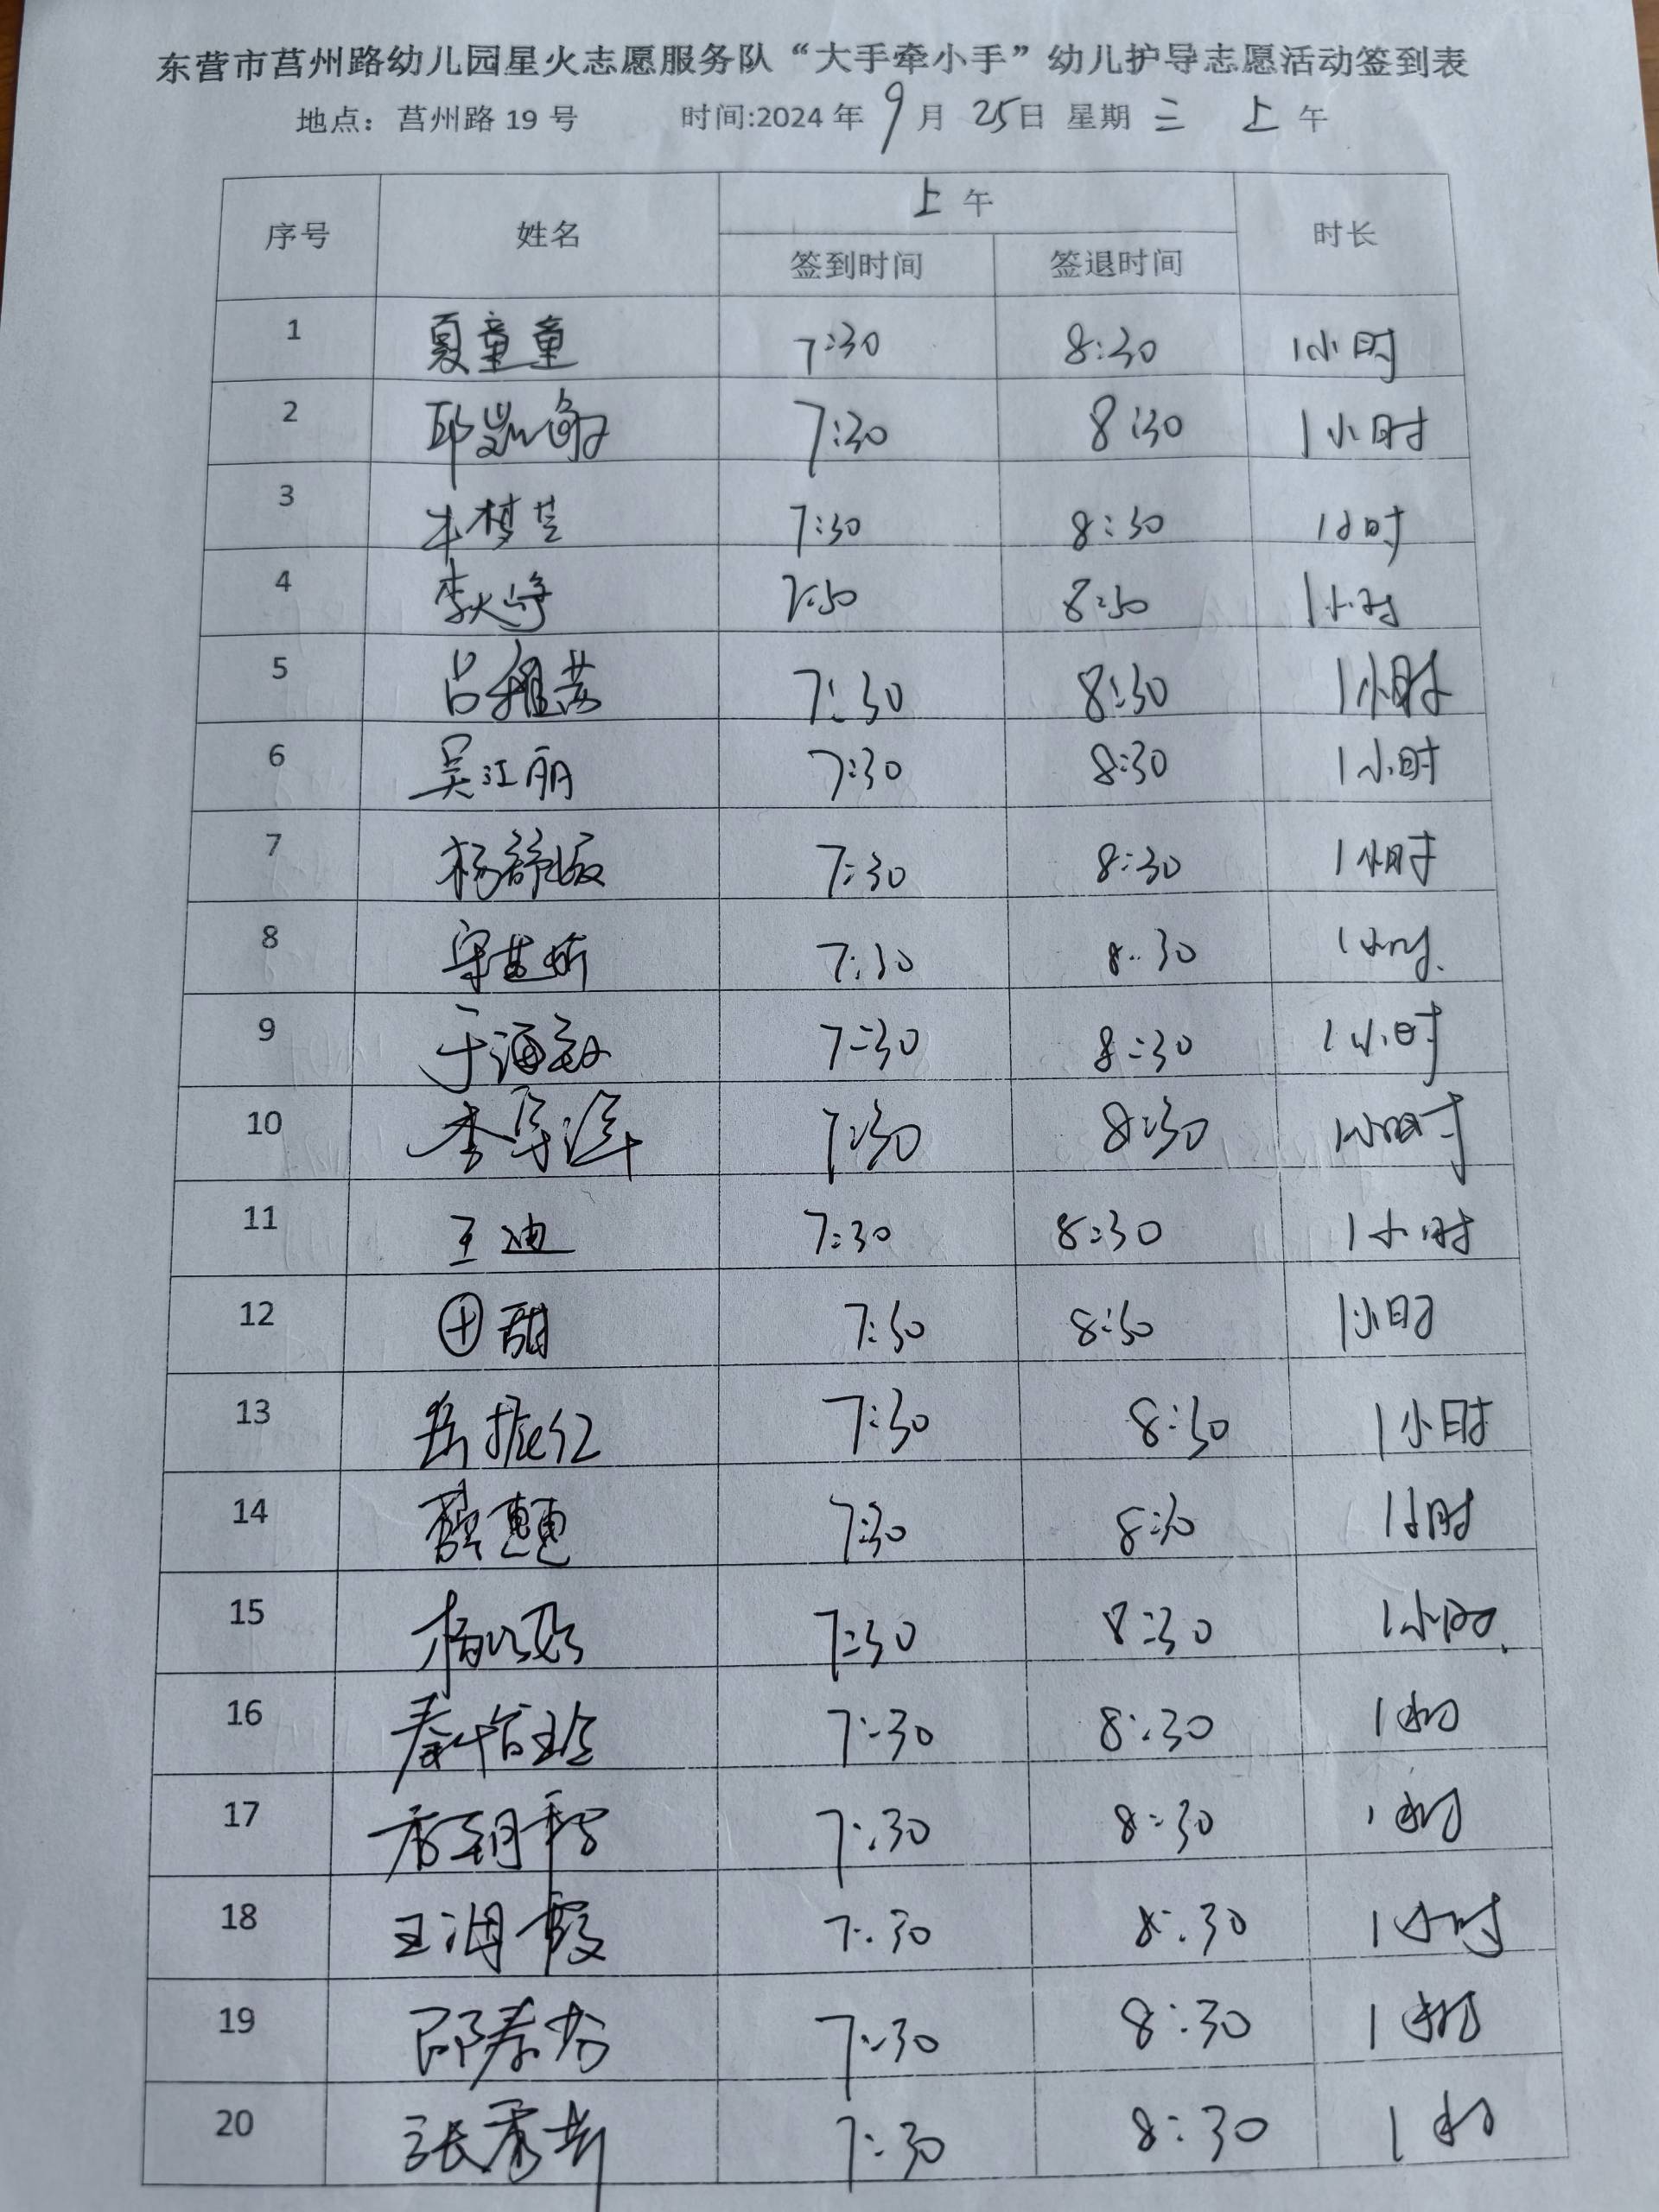 东营市莒州路幼儿园星火志愿服务队“大手牵小手”幼儿护导志愿活动签到表
地点：莒州路 19 号 时间:2024 年 9 月 25 日 星期 三 上 午
序号 姓名 上 午 时长
签到时间 签退时间
1 夏童童 7:30 8:30 1小时
2 邱 7:30 8:30 1小时
3 牛梦芸 7:30 8:30 1小时
4 李 7:30 8:30 1小时
5 吕 7:30 8:30 1小时
6 吴江丽 7:30 8:30 1小时
7 杨舒媛 7:30 8:30 1小时
8 7:30 8:30 1小时
9 于海 7:30 8:30 1小时
10 李 7:30 8:30 1小时
11 王迪 7:30 8:30 1小时
12 田甜 7:30 8:30 1小时
13 岳振红 7:30 8:30 1小时
14 薛 7:30 8:30 1小时
15 杨 7:30 8:30 1小时
16 秦 7:30 8:30 1小时
17 7:30 8:30 1小时
18 王海霞 7:30 8:30 1小时
19 邵春芳 7:30 8:30 1小时
20 张 7:30 8:30 1小时